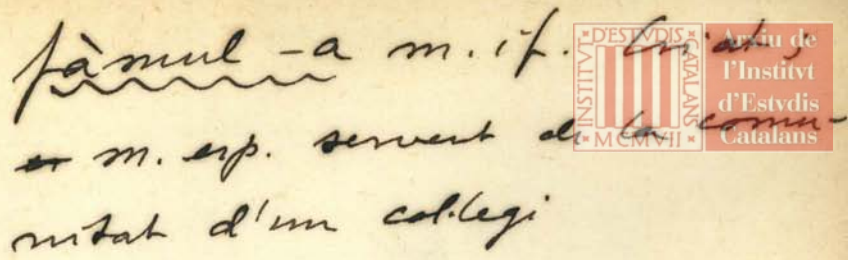 fàmul -a m. i f. Criat;
m. esp. servent de la comu-
nitat d'un col·legi
INSTITVT D'ESTVDIS CATALANS
MCMVII
Arxiu de
l'Institvt
d'Estvdis
Catalans